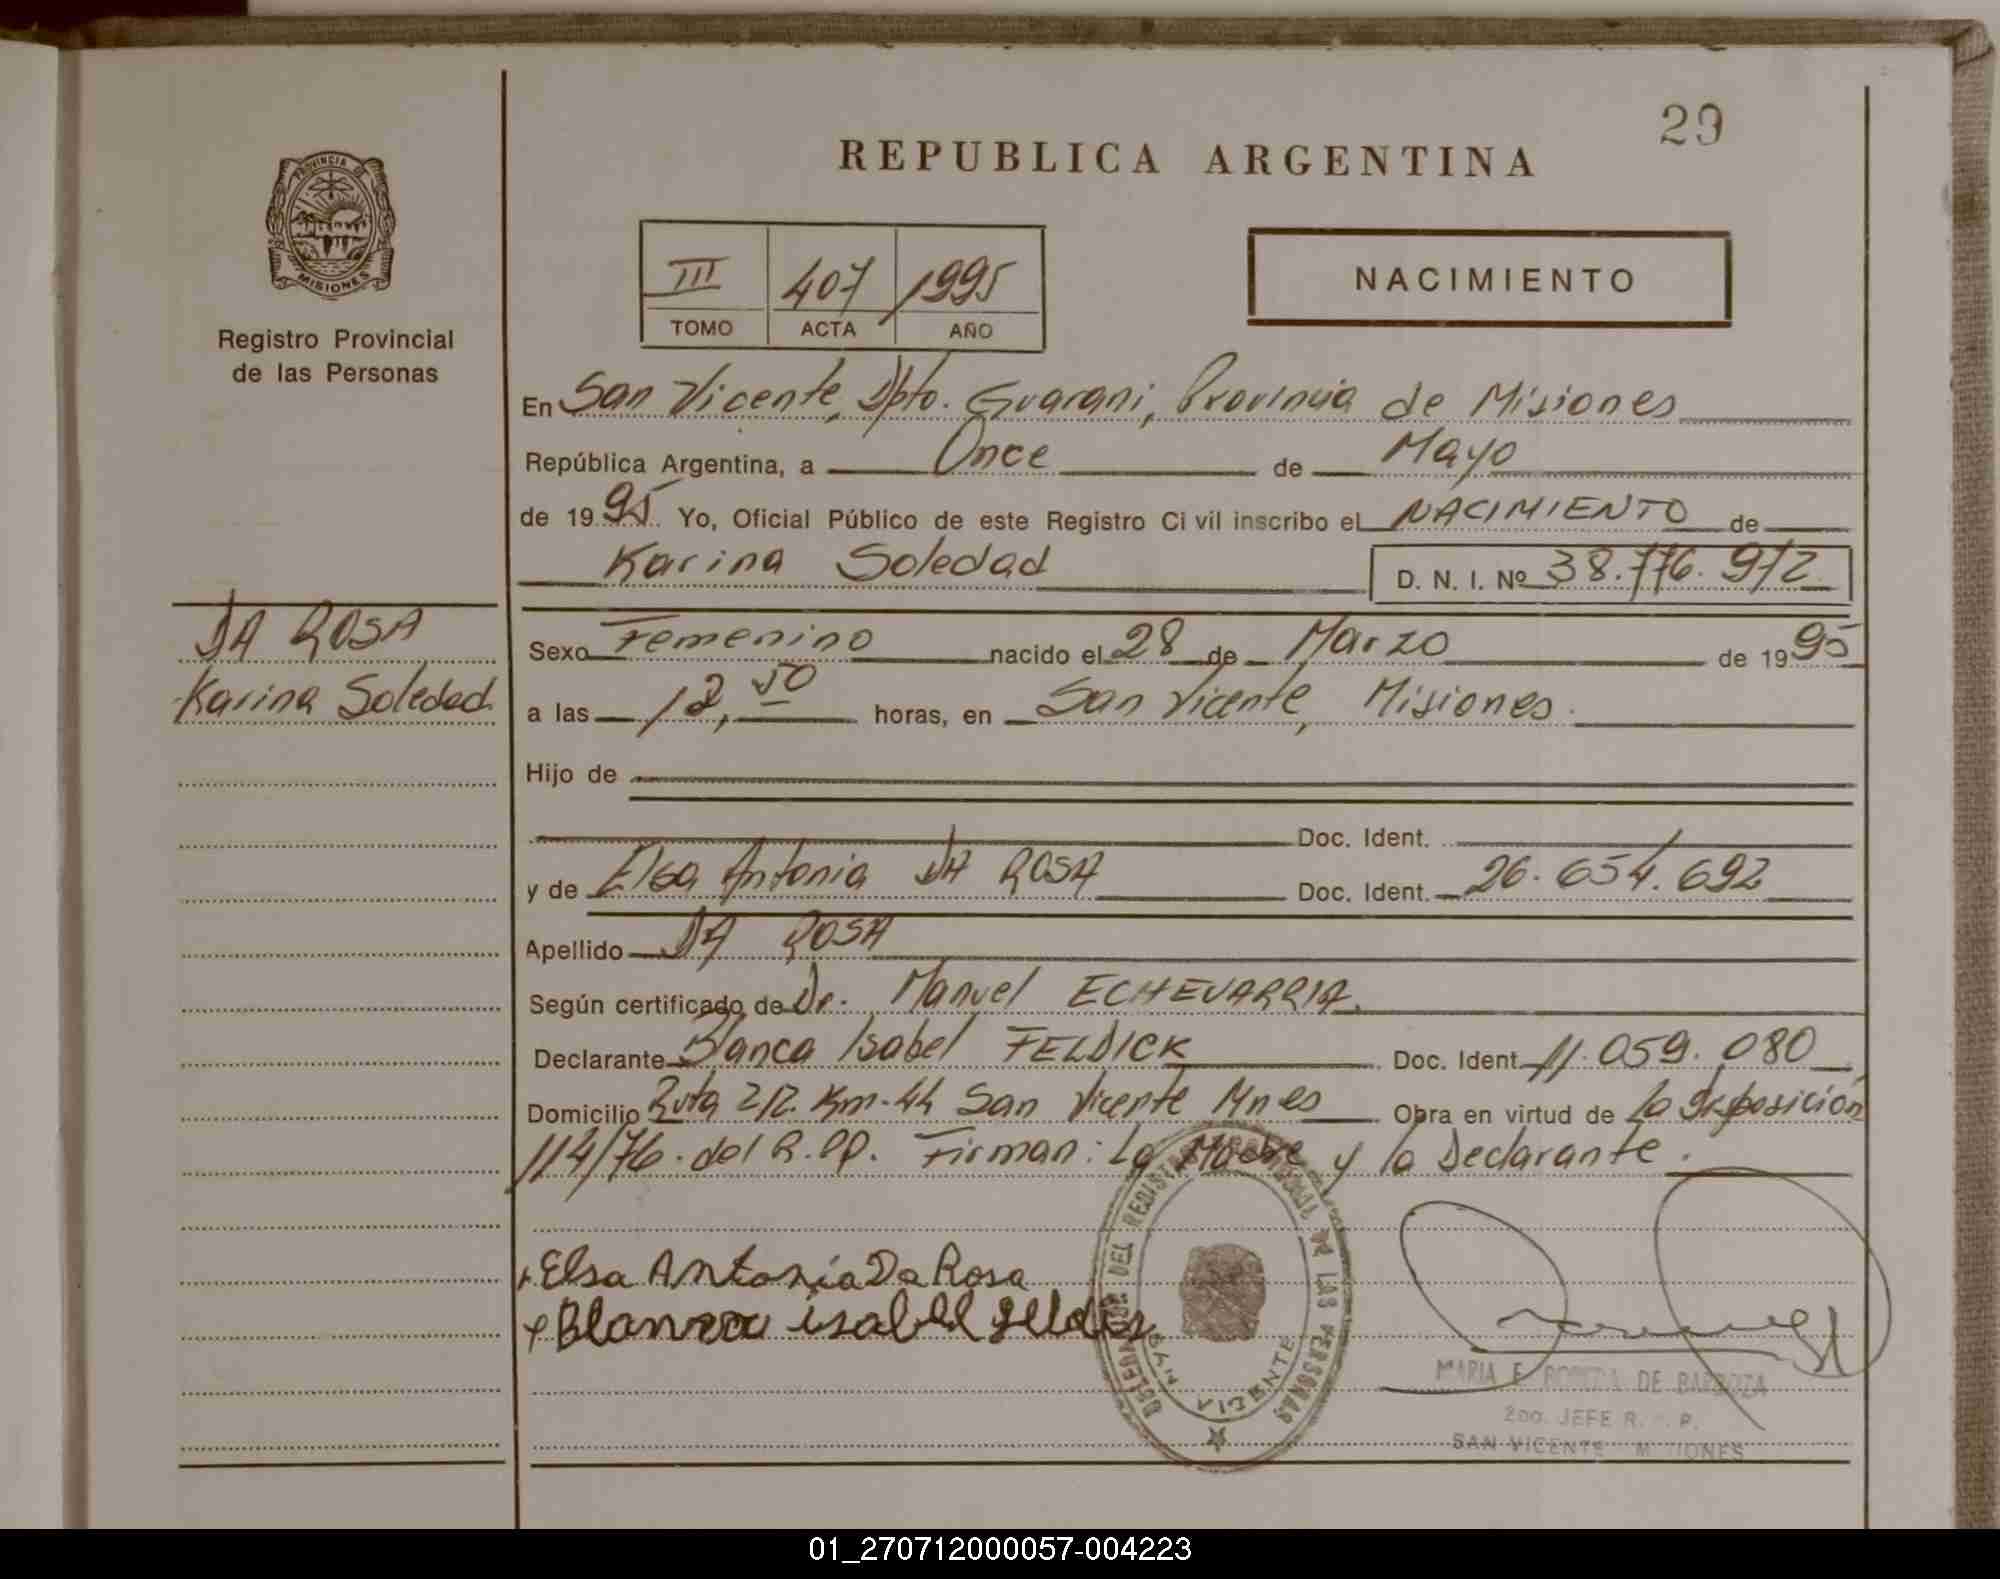 29
REPUBLICA ARGENTINA
PROVINCIA DE
MISIONES
Registro Provincial
de las Personas
III 407 1995
TOMO ACTA AÑO
NACIMIENTO
En San Vicente, Dpto. Guarani, Provincia de Misiones
República Argentina, a Once de Mayo
de 1995 Yo, Oficial Público de este Registro Civil inscribo el NACIMIENTO de
Karina Soledad D. N. I. Nº 38.776.972
DA ROSA
Karina Soledad
Sexo Femenino nacido el 28 de Marzo de 1995
a las 12,50 horas, en San Vicente, Misiones.
Hijo de
Doc. Ident.
y de Elsa Antonia DA ROSA Doc. Ident. 26.654.692
Apellido DA ROSA
Según certificado de Dr. Manuel ECHEVARRIA.
Declarante Blanca Isabel FELDICK Doc. Ident. 11.059.080
Domicilio Ruta 212. Km.44 San Vicente Mnes Obra en virtud de la disposición
114/76. del R.PP. Firman: La Madre y la Declarante.
Elsa Antonia Da Rosa
Blanca isabel
DEL REGISTRO DE LAS PERSONAS
SAN VICENTE
MARIA E DE BARBOZA
2do. JEFE R. P.
SAN VICENTE MISIONES
01_270712000057-004223